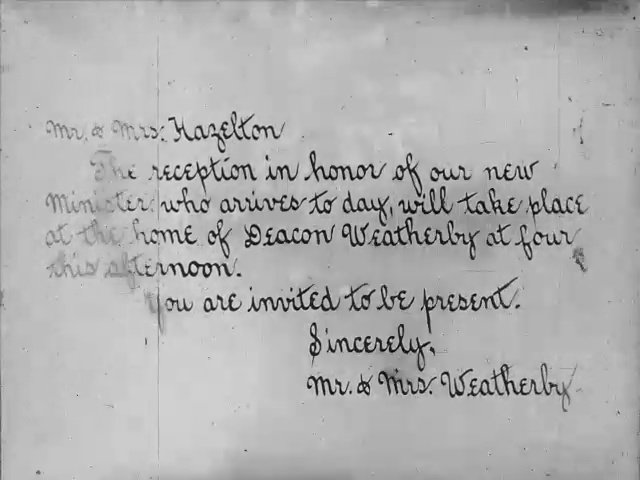 Mr. & Mrs. Hazelton
The reception in honor of our new
Minister who arrives to day, will take place
at the home of Deacon Weatherby at four
this afternoon.
You are invited to be present.
Sincerely,
Mr. & Mrs. Weatherby